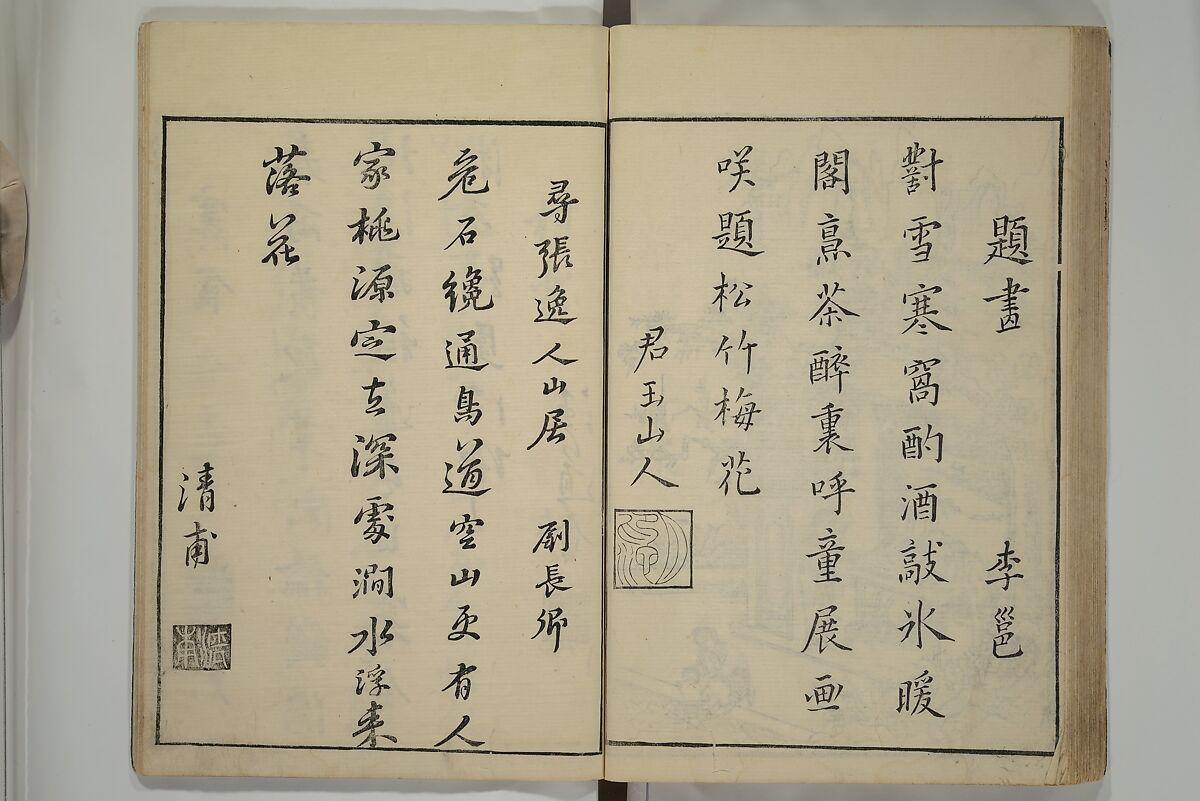 題畫 李邕
對雪寒窩酌酒敲氷暖
閣烹茶醉裏呼童展画
咲題松竹梅花
君玉山人
尋張逸人山居 劉長卿
危石纔通鳥道空山更有人
家桃源定在深處澗水浮来
落花
清甫
清甫